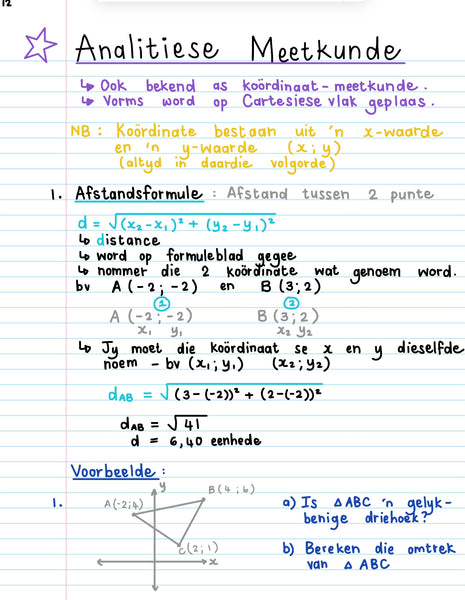 12
Analitiese Meetkunde
↳ Ook bekend as koördinaat-meetkunde.
↳ Vorms word op Cartesiese vlak geplaas.
NB: Koördinate bestaan uit 'n x-waarde
en 'n y-waarde (x; y)
(altyd in daardie volgorde)
1. Afstandsformule : Afstand tussen 2 punte
d = √((x₂-x₁)² + (y₂-y₁)²)
↳ distance
↳ word op formuleblad gegee
↳ nommer die 2 koördinate wat genoem word.
bv A(-2;-2) en B(3;2)
① ②
A(-2;-2) B(3;2)
x₁ y₁ x₂ y₂
↳ Jy moet die koördinaat se x en y dieselfde
noem - bv (x₁;y₁) (x₂;y₂)
dAB = √((3-(-2))² + (2-(-2))²)
dAB = √41
d = 6,40 eenhede
Voorbeelde:
1.
y
A(-2;4)
B(4;6)
C(2;1)
x
a) Is △ABC 'n gelyk-
benige driehoek?
b) Bereken die omtrek
van △ABC